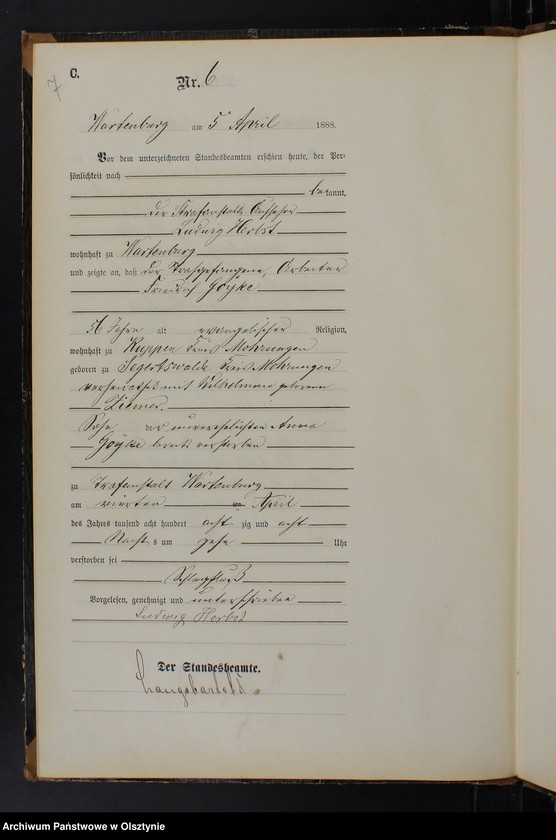 7
C.
Nr. 6
Wartenburg am 5. April 1888.
Vor dem unterzeichneten Standesbeamten erschien heute, der Per-
sönlichkeit nach
bekannt,
der Strafanstalts-Aufseher
Ludwig Herbst
wohnhaft zu Wartenburg
und zeigte an, daß der Strafgefangene, Arbeiter
Friedrich Goyke
56 Jahre alt evangelischer Religion,
wohnhaft zu Kuppen Kreis Mohrungen
geboren zu Segertswalde Kreis Mohrungen
verheirathet mit Wilhelmine geborene
Ziemer
Sohn der unverehelichten Anna
Goyke bereits verstorben
zu Strafanstalt Wartenburg
am vierten April
des Jahres tausend acht hundert achtzig und acht
Nachts um zehn Uhr
verstorben sei
Schlagfluß
Vorgelesen, genehmigt und unterschrieben
Ludwig Herbst
Der Standesbeamte.
Archiwum Państwowe w Olsztynie